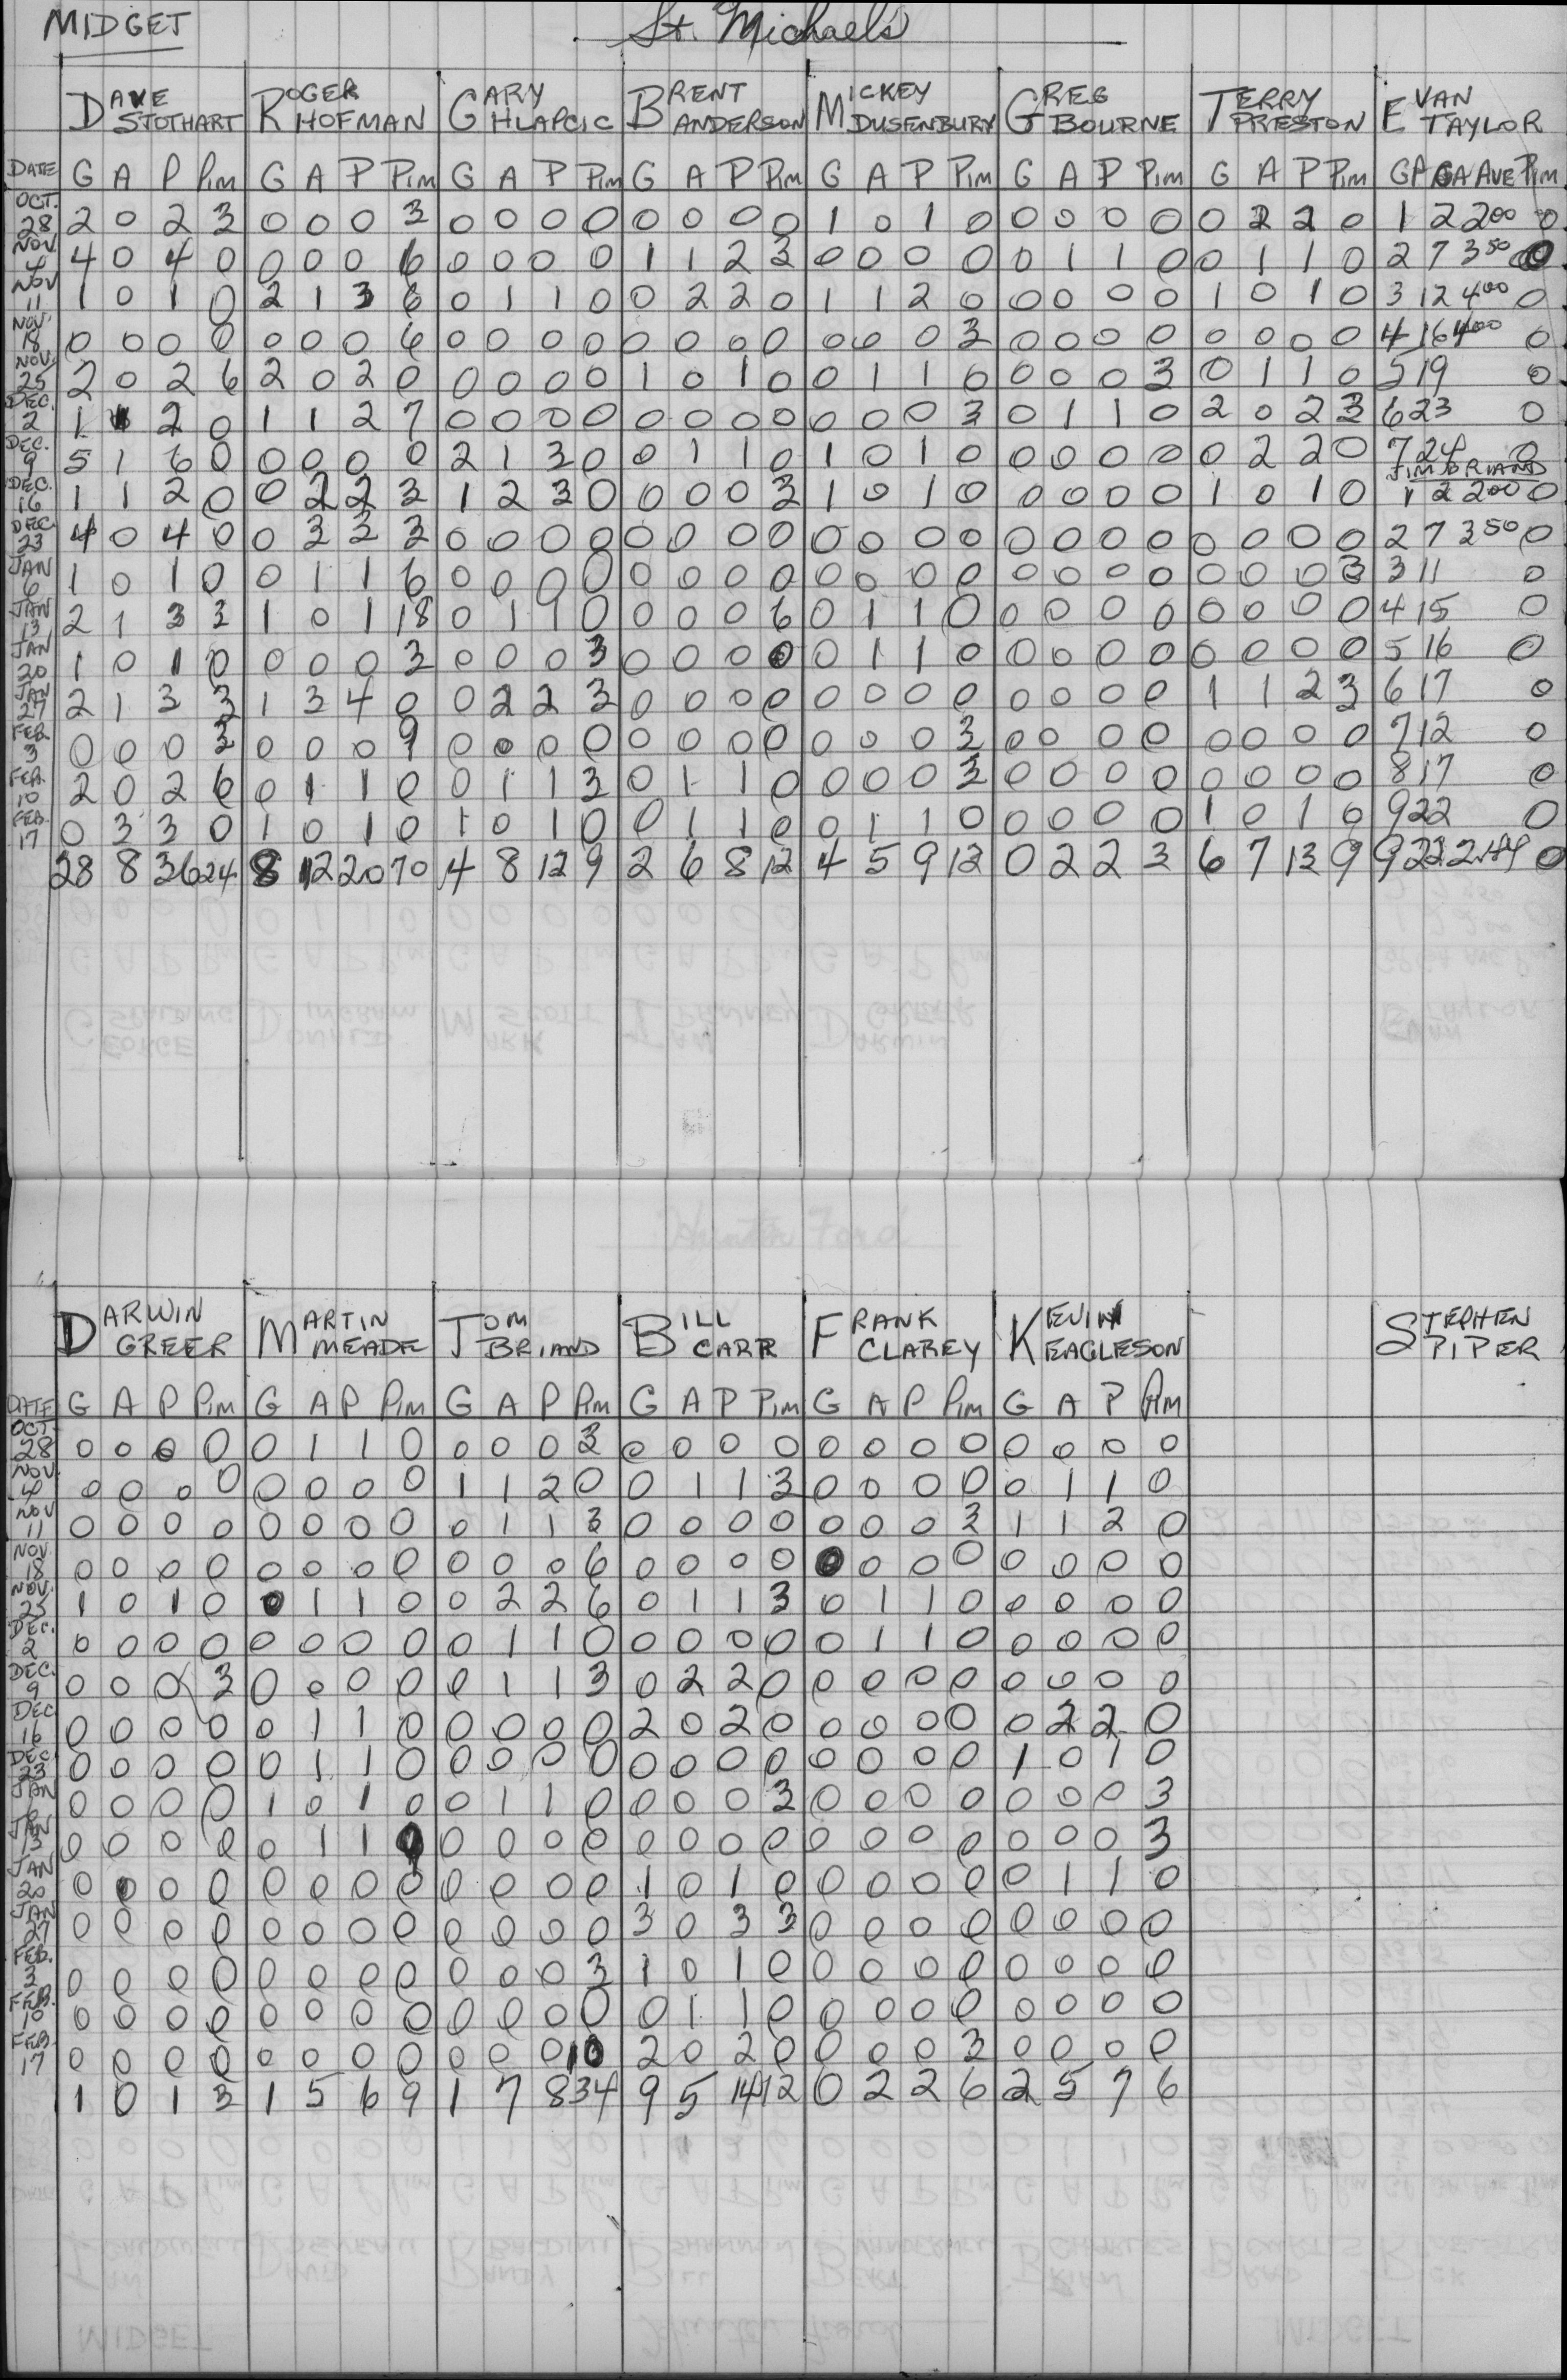 MIDGET St. Michael's
DAVE STOTHART ROGER HOFMAN GARY HLAPCIC BRENT ANDERSON MICKEY DUSENBURY GREG BOURNE TERRY PRESTON EVAN TAYLOR
DATE G A P Pim G A P Pim G A P Pim G A P Pim G A P Pim G A P Pim G A P Pim GP GA AVE Pim
OCT. 28 2 0 2 3 0 0 0 3 0 0 0 0 0 0 0 0 1 0 1 0 0 0 0 0 0 2 2 0 1 2 2.00 0
NOV 4 4 0 4 0 0 0 0 6 0 0 0 0 1 1 2 3 0 0 0 0 0 1 1 0 0 1 1 0 2 7 3.50 0
NOV 11 1 0 1 0 2 1 3 6 0 1 1 0 0 2 2 0 1 1 2 0 0 0 0 0 1 0 1 0 3 12 4.00 0
NOV 18 0 0 0 0 0 0 0 6 0 0 0 0 0 0 0 0 0 0 0 3 0 0 0 0 0 0 0 0 4 16 4.00 0
NOV. 25 2 0 2 6 2 0 2 0 0 0 0 0 1 0 1 0 0 1 1 0 0 0 0 3 0 1 1 0 5 19 0
DEC. 2 1 1 2 0 1 1 2 7 0 0 0 0 0 0 0 0 0 0 0 3 0 1 1 0 2 0 2 3 6 23 0
DEC. 9 5 1 6 0 0 0 0 0 2 1 3 0 0 1 1 0 1 0 1 0 0 0 0 0 0 2 2 0 7 24 0
JIM BRIAND
DEC. 16 1 1 2 0 0 2 2 3 1 2 3 0 0 0 0 3 1 0 1 0 0 0 0 0 1 0 1 0 1 2 2.00 0
DEC 23 4 0 4 0 0 3 3 3 0 0 0 0 0 0 0 0 0 0 0 0 0 0 0 0 0 0 0 0 2 7 3.50 0
JAN 6 1 0 1 0 0 1 1 6 0 0 0 0 0 0 0 0 0 0 0 0 0 0 0 0 0 0 0 3 3 11 0
JAN 13 2 1 3 3 1 0 1 18 0 1 1 0 0 0 0 6 0 1 1 0 0 0 0 0 0 0 0 0 4 15 0
JAN 20 1 0 1 0 0 0 0 3 0 0 0 3 0 0 0 0 0 1 1 0 0 0 0 0 0 0 0 0 5 16 0
JAN 27 2 1 3 3 1 3 4 0 0 2 2 3 0 0 0 0 0 0 0 0 0 0 0 0 1 1 2 3 6 17 0
FEB 3 0 0 0 3 0 0 0 9 0 0 0 0 0 0 0 0 0 0 0 3 0 0 0 0 0 0 0 0 7 12 0
FEB. 10 2 0 2 6 0 1 1 0 0 1 1 3 0 1 1 0 0 0 0 3 0 0 0 0 0 0 0 0 8 17 0
FEB. 17 0 3 3 0 1 0 1 0 1 0 1 0 0 1 1 0 0 1 1 0 0 0 0 0 1 0 1 0 9 22 0
28 8 36 24 8 12 20 70 4 8 12 9 2 6 8 12 4 5 9 12 0 2 2 3 6 7 13 9 9 22 2.44 0
DARWIN GREER MARTIN MEADE TOM BRIAND BILL CARR FRANK CLAREY KEVIN EAGLESON STEPHEN PIPER
DATE G A P Pim G A P Pim G A P Pim G A P Pim G A P Pim G A P Pim
OCT. 28 0 0 0 0 0 1 1 0 0 0 0 3 0 0 0 0 0 0 0 0 0 0 0 0
NOV. 4 0 0 0 0 0 0 0 0 1 1 2 0 0 1 1 3 0 0 0 0 0 1 1 0
NOV 11 0 0 0 0 0 0 0 0 0 1 1 3 0 0 0 0 0 0 0 3 1 1 2 0
NOV. 18 0 0 0 0 0 0 0 0 0 0 0 6 0 0 0 0 0 0 0 0 0 0 0 0
NOV. 25 1 0 1 0 0 1 1 0 0 2 2 6 0 1 1 3 0 1 1 0 0 0 0 0
DEC. 2 0 0 0 0 0 0 0 0 0 1 1 0 0 0 0 0 0 1 1 0 0 0 0 0
DEC. 9 0 0 0 3 0 0 0 0 0 1 1 3 0 2 2 0 0 0 0 0 0 0 0 0
DEC 16 0 0 0 0 0 1 1 0 0 0 0 0 2 0 2 0 0 0 0 0 0 2 2 0
DEC. 23 0 0 0 0 0 1 1 0 0 0 0 0 0 0 0 0 0 0 0 0 1 0 1 0
JAN 6 0 0 0 0 1 0 1 0 0 1 1 0 0 0 0 3 0 0 0 0 0 0 0 3
JAN 13 0 0 0 0 0 1 1 9 0 0 0 0 0 0 0 0 0 0 0 0 0 0 0 3
JAN 20 0 0 0 0 0 0 0 0 0 0 0 0 1 0 1 0 0 0 0 0 0 1 1 0
JAN 27 0 0 0 0 0 0 0 0 0 0 0 0 3 0 3 3 0 0 0 0 0 0 0 0
FEB. 3 0 0 0 0 0 0 0 0 0 0 0 3 1 0 1 0 0 0 0 0 0 0 0 0
FEB. 10 0 0 0 0 0 0 0 0 0 0 0 0 0 1 1 0 0 0 0 0 0 0 0 0
FEB 17 0 0 0 0 0 0 0 0 0 0 0 10 2 0 2 0 0 0 0 3 0 0 0 0
1 0 1 3 1 5 6 9 1 7 8 34 9 5 14 12 0 2 2 6 2 5 7 6